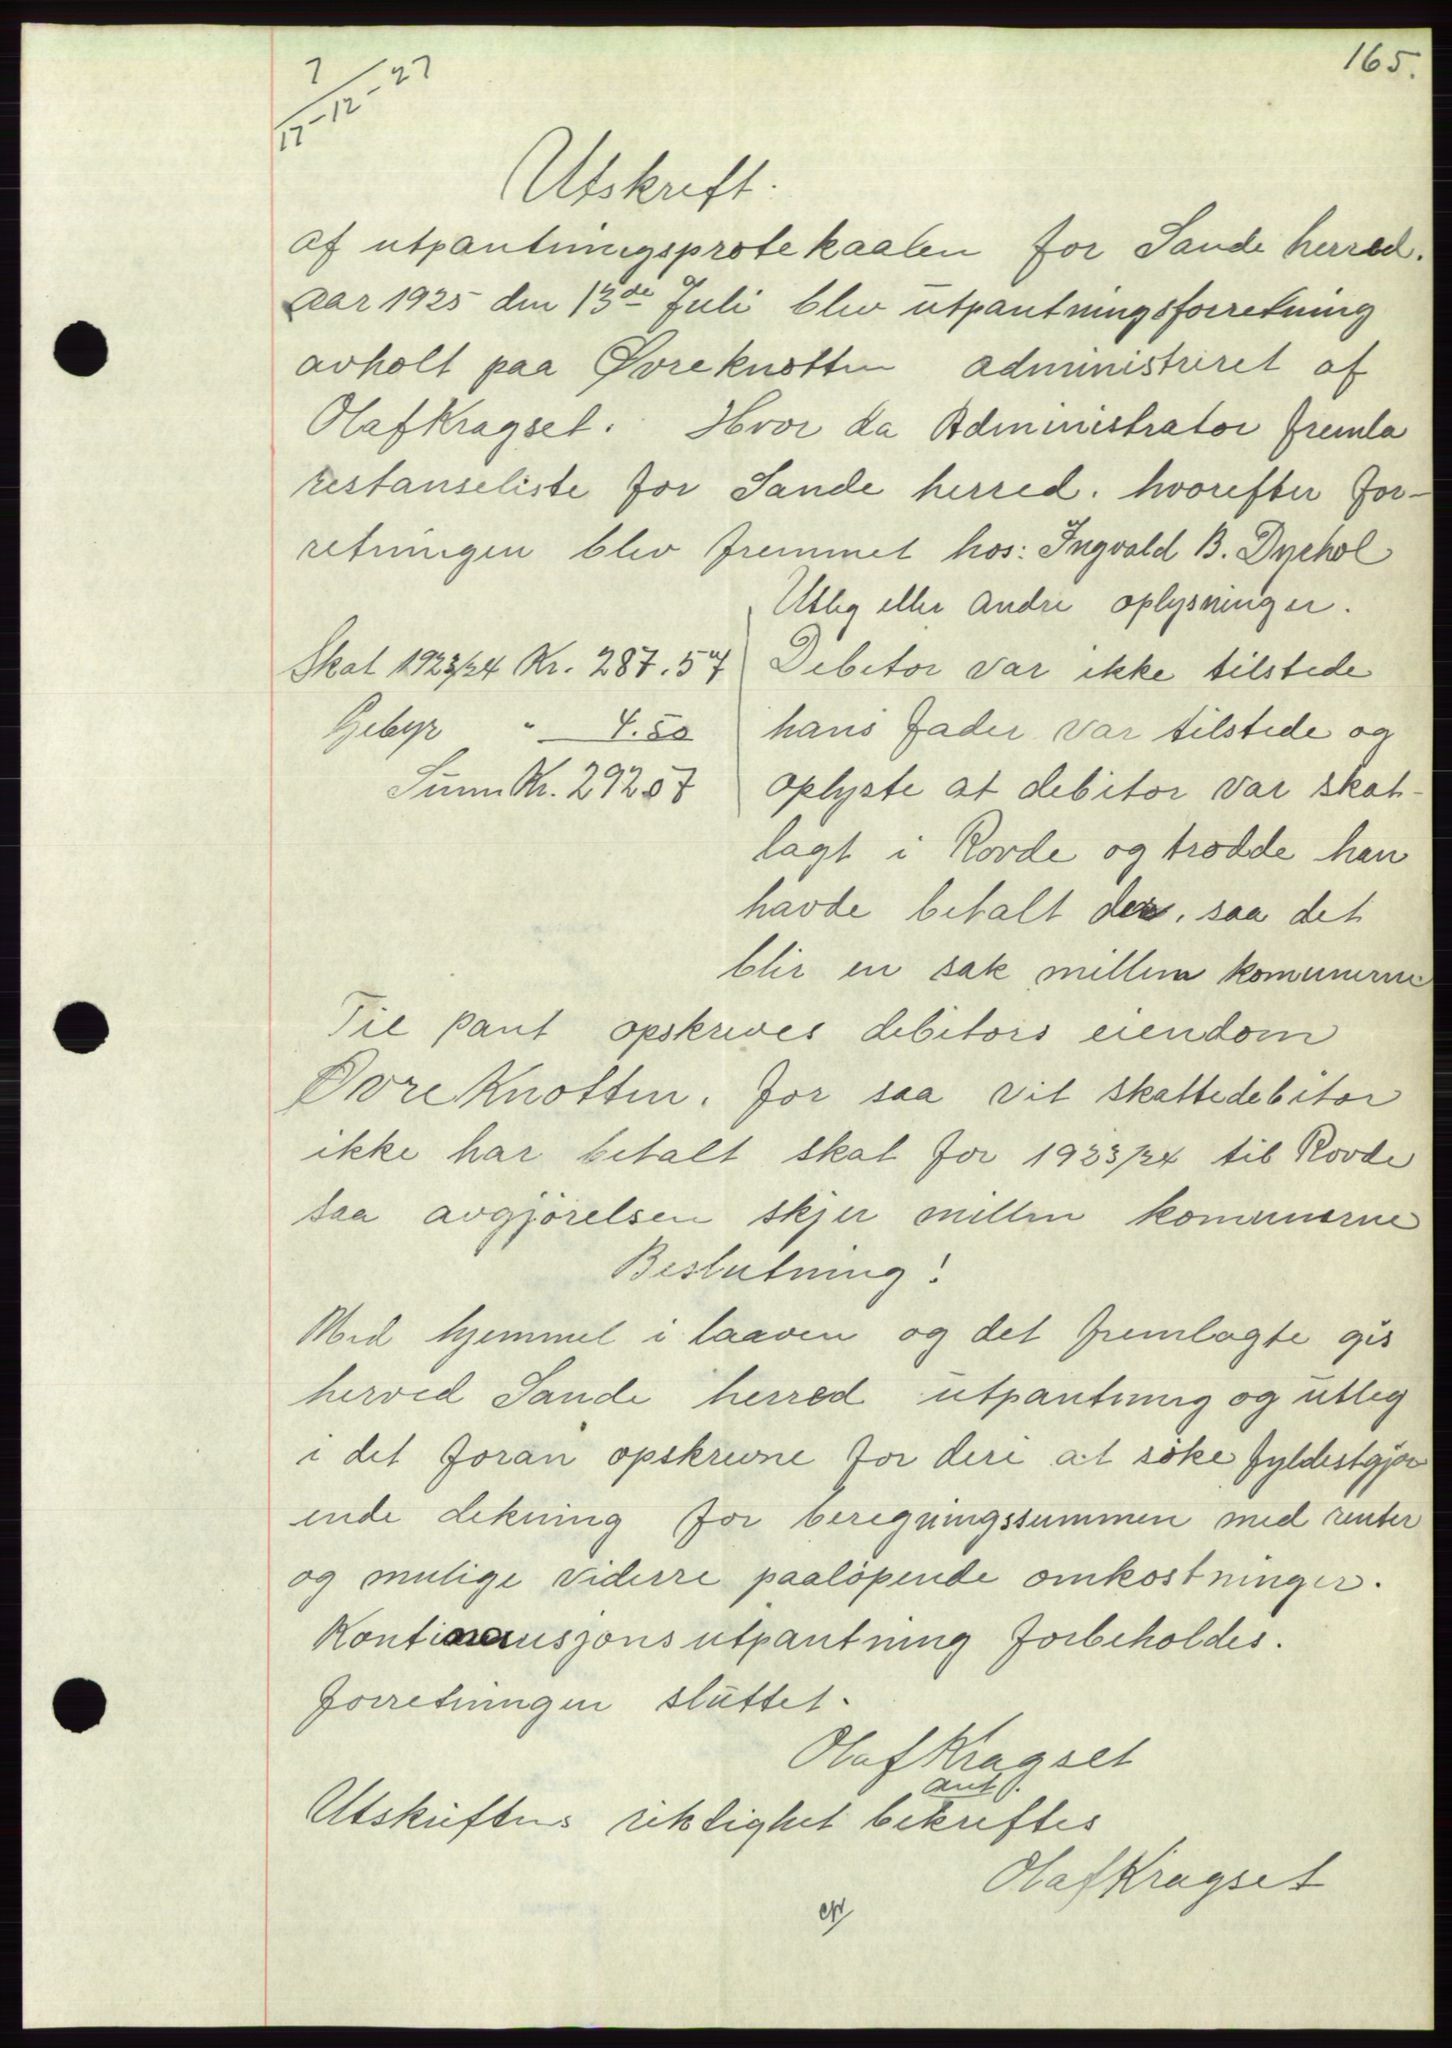 165.
7/17-12-27
Utskrift.
af utpantningsprotekaalen for Sande herred.
Aar 1925 den 13de Juli blev utpantningsforretning
avholt paa Øvreknotten administreret af
Olaf Kragset. Hvor da Administrator fremla
restanseliste for Sande herred. hvorefter for-
retningen blev fremmet hos: Ingvald B. Dyrhol
Utleg eller andre oplysninger.
Skat 1923/24 Kr. 287.57 Debitor var ikke tilstede
Gebyr " 4.50 hans fader var tilstede og
Sum Kr. 292.07 oplyste at debitor var skat-
lagt i Rovde og trodde han
havde betalt der, saa det
blir en sak millem komunerne
Til pant opskrives debitors eiendom
Øvre Knotten. for saa vit skattedebitor
ikke har betalt skat for 1923/24 til Rovde
saa avgjörelsen skjer millem komunerne
Beslutning!
Med hjemmel i laaven og det fremlagte gis
herved Sande herred utpantning og utleg
i det foran opskrevne for deri at söke fyldestgjør
ende dekning for beregningssummen med renter
og mulige viderre paalöpende omkostninger.
Kontinuasjonsutpantning forbeholdes.
forretningen sluttet.
Olaf Kragset
autf.
Utskriftens riktighet bekreftes
Olaf Kragset